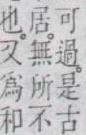 可過是古
居無所不
也又為和